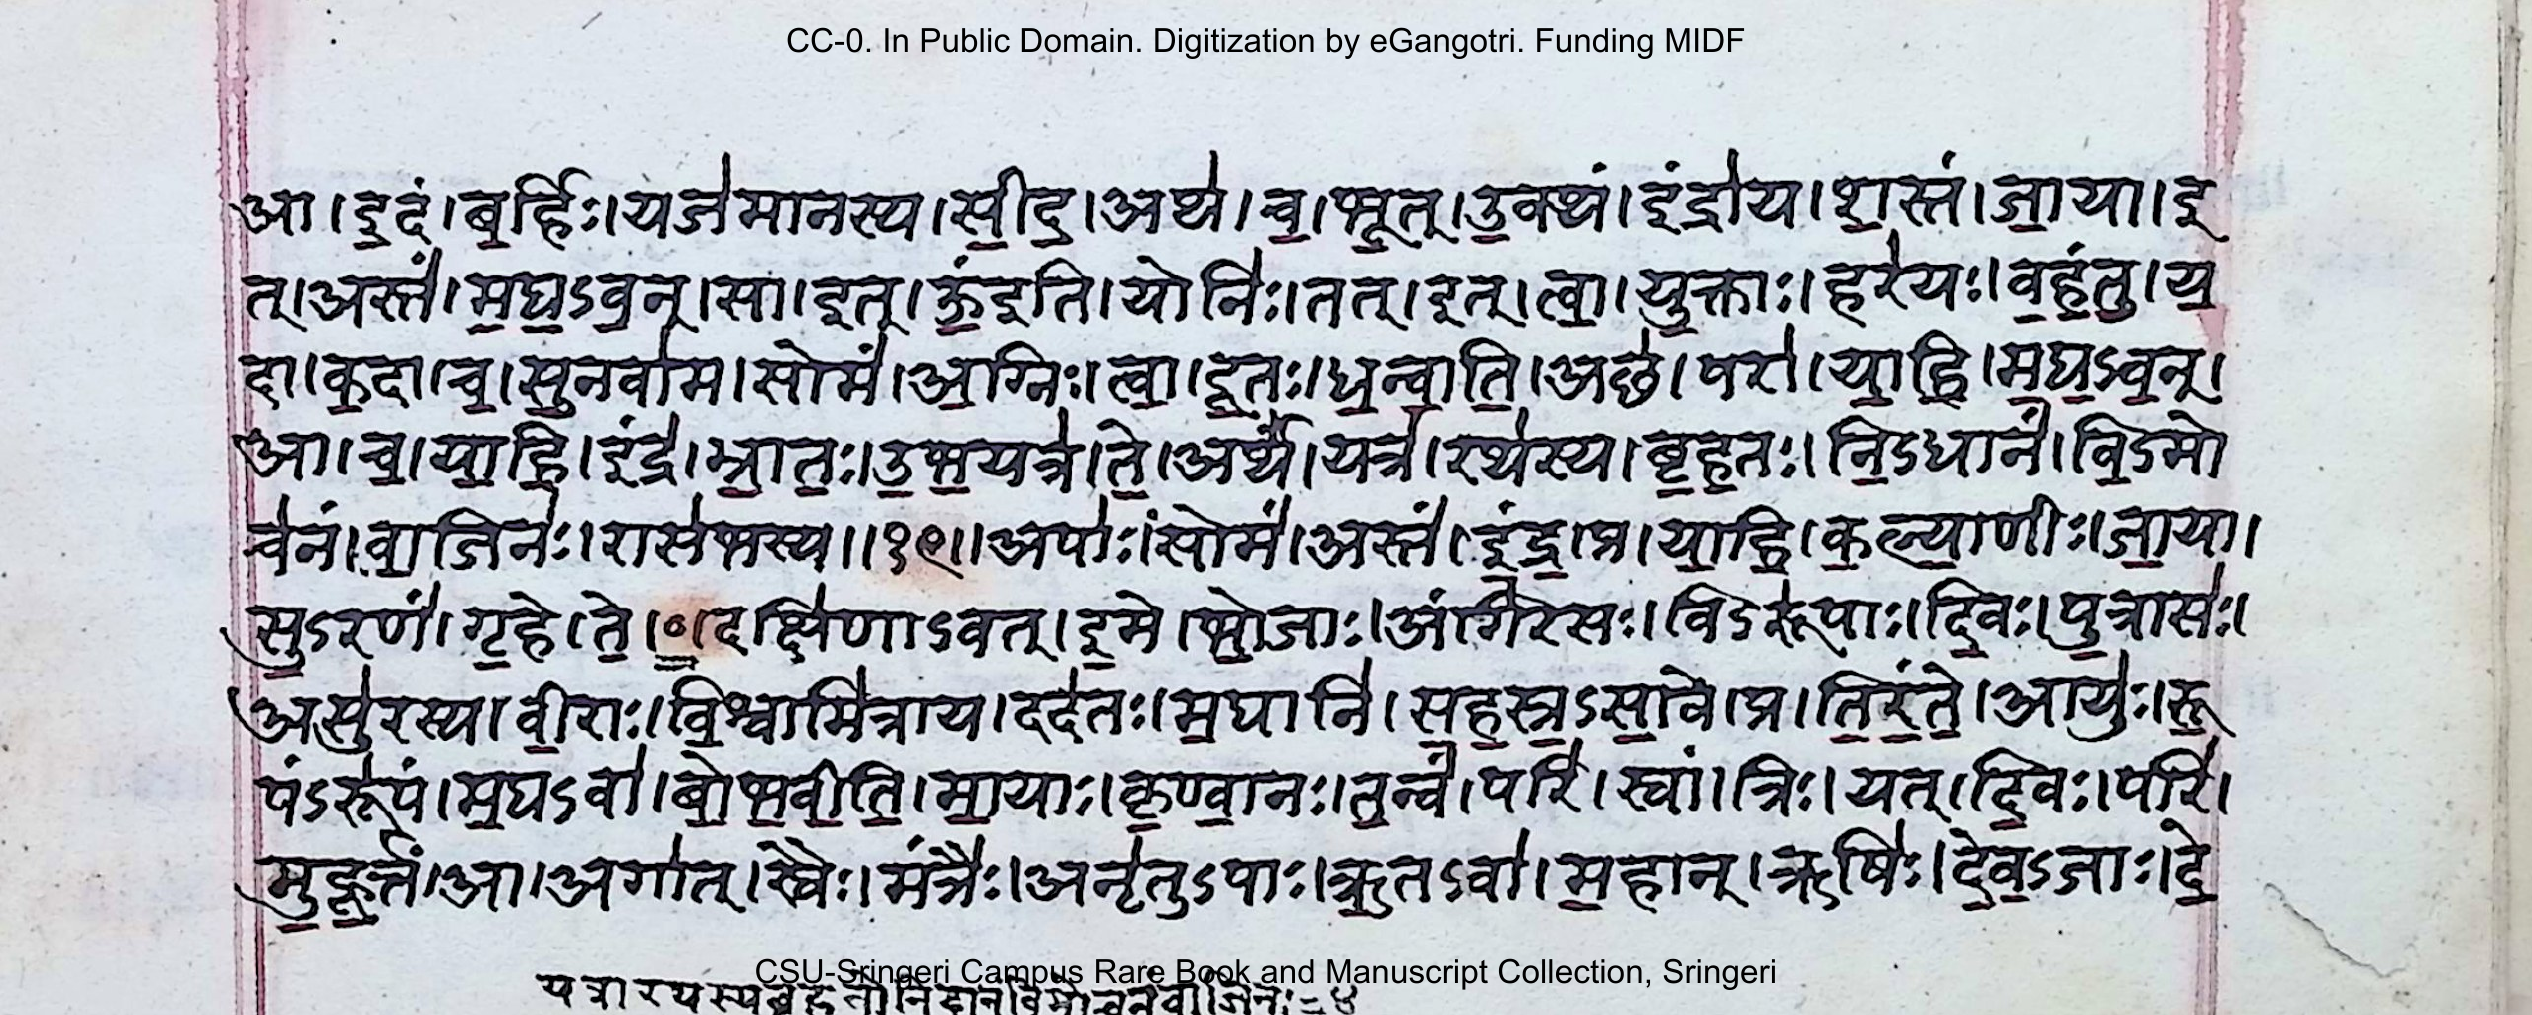 CC-0. In Public Domain. Digitization by eGangotri. Funding MIDF
आ।इ॒दं।ब॒र्हिः।यज॑मानस्य।सी॒द॒।अथ॑।च॒।भू॒त्।उ॒क्थं।इंद्रा॑य।श॒स्तं।जा॒या।इ
त्।अस्तं॑।म॒घ॒ऽव॒न्।सा।इत्।ऊं॒इति॑।योनिः॑।तत्।इत्।त्वा॒।यु॒क्ताः।हर॑यः।व॒हं॒तु॒।य॒
दा।क॒दा।च॒।सु॒नवा॑म।सोमं॑।अ॒ग्निः।त्वा॒।दू॒तः।ध॒न्वा॒ति॒।अछ॑।परा॑।या॒हि॒।म॒घ॒ऽव॒न्।
आ।च॒।या॒हि॒।इंद्र॑।भ्रा॒तः॒।उ॒भ॒यत्र॑।ते॒।अर्थं॑।यत्र॑।रथ॑स्य।बृ॒ह॒तः।नि॒ऽधानं॑।वि॒ऽमो
च॑नं।वा॒जिनः॑।रास॑भस्य॥१९॥अपाः॑।सोमं॑।अस्तं॑।इं॒द्र॒।प्र।या॒हि॒।क॒ल्या॒णीः।जा॒या।
सु॒ऽरणं॑।गृ॒हे।ते॒।०॒।दक्षि॑णाऽवत्।इ॒मे।भो॒जाः।अंगि॑रसः।विऽरू॑पाः।दि॒वः।पु॒त्रासः॑।
असु॑रस्य।वी॒राः।वि॒श्वामि॑त्राय।दद॑तः।म॒घानि॑।स॒ह॒स्र॒ऽसा॒वे।प्र।ति॒रं॒ते॒।आयुः॑।रू॒
पंऽरू॑पं।म॒घऽवा॑।बो॒भ॒वी॒ति॒।मा॒याः।कृ॒ण्वा॒नः।त॒न्वं॑।परि॑।स्वां।त्रिः।यत्।दि॒वः।परि॑।
मु॒हू॒र्त्तं।आ।अगा॑त्।स्वैः।मंत्रैः॑।अनृ॑तुऽपाः।ऋ॒तऽवा॑।म॒हान्।ऋषिः॑।दे॒व॒ऽजाः।दे॒
CSU-Sringeri Campus Rare Book and Manuscript Collection, Sringeri